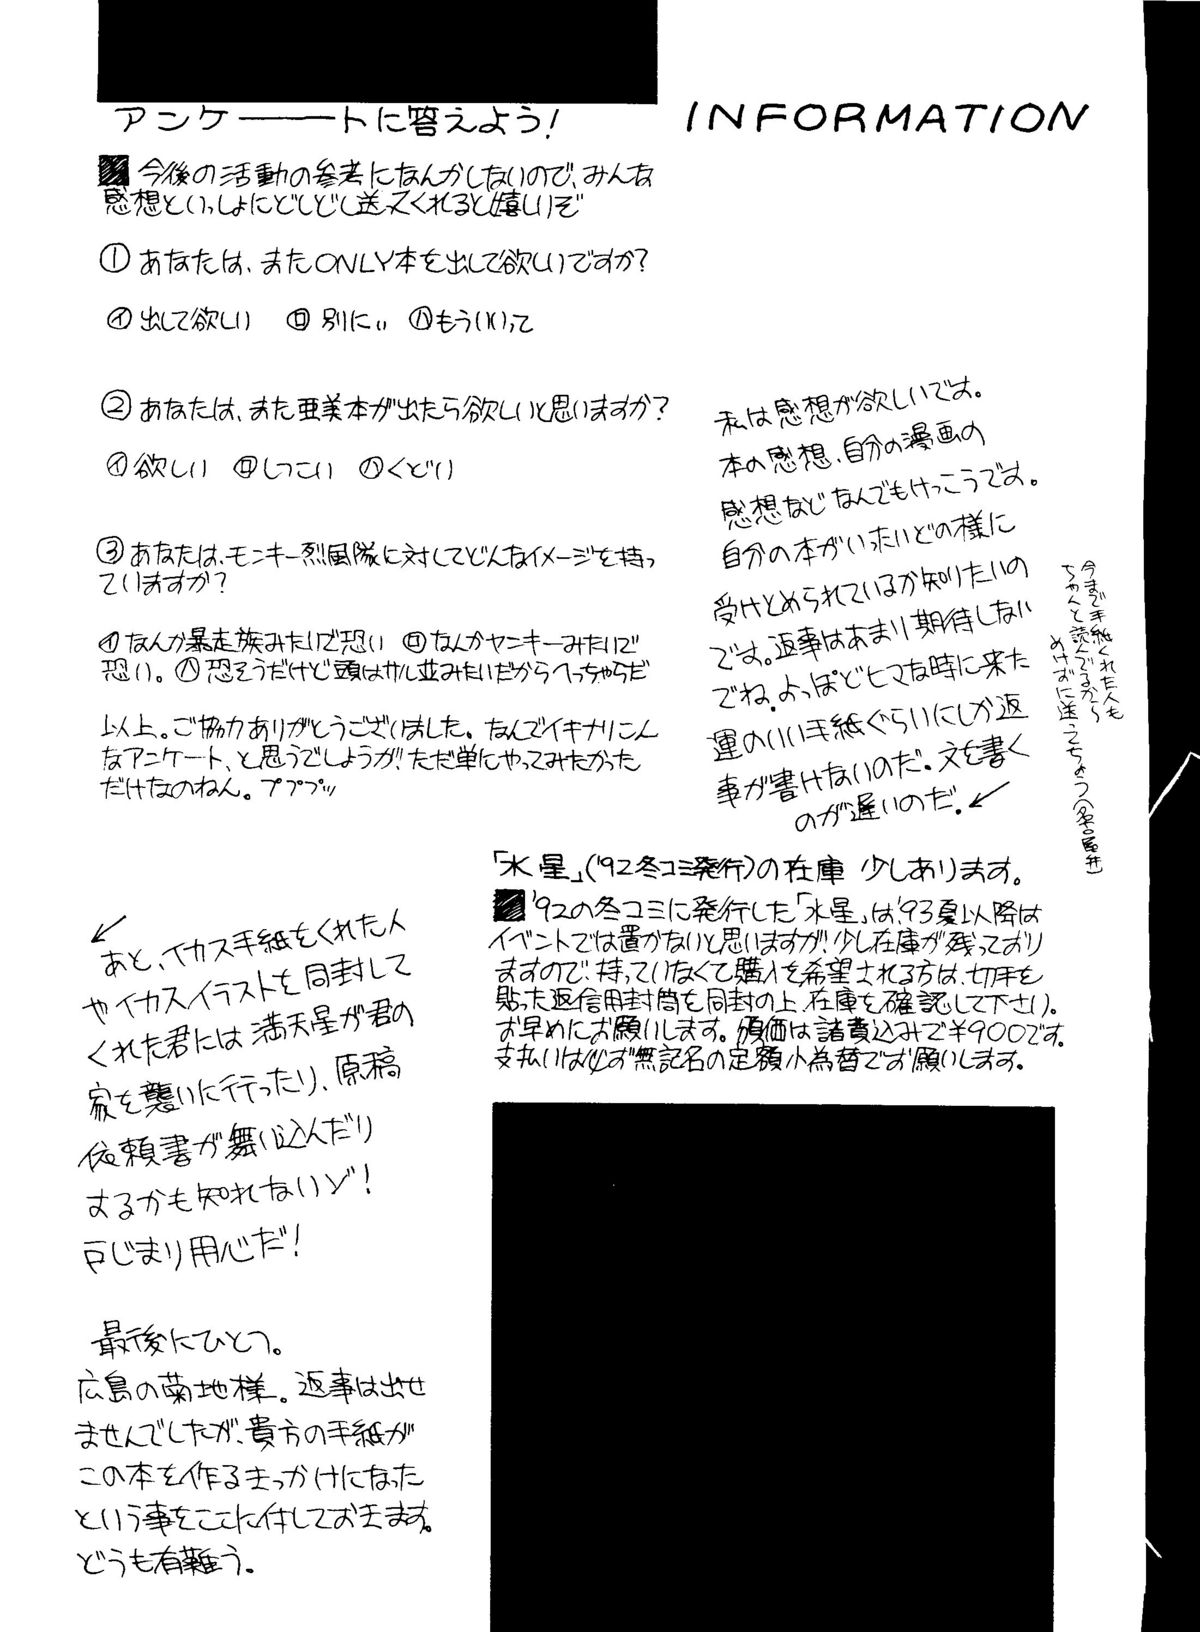 アンケートに答えよう!
INFORMATION
今後の活動の参考になんかしないので、みんな
感想といっしょにどしどし送ってくれると嬉しいぞ
①あなたは、またONLY本を出して欲しいですか?
㋑出して欲しい ㋺別にぃ ㋩もういいって
②あなたは、また亜美本が出たら欲しいと思いますか?
㋑欲しい ㋺しつこい ㋩くどい
③あなたは、モンキー烈風隊に対してどんなイメージを持っ
ていますか?
㋑なんか暴走族みたいで恐い ㋺なんかヤンキーみたいで
恐い。㋩恐そうだけど頭はサル並みたいだからへっちゃらだ
以上。ご協力ありがとうございました。なんでイキナリこん
なアンケート、と思うでしょうが、ただ単にやってみたかった
だけなのねん。プププッ
私は感想が欲しいです。
本の感想、自分の漫画の
感想などなんでもけっこうです。
自分の本がいったいどの様に
受けとめられているか知りたいの
です。返事はあまり期待しない
でね。よっぽどヒマな時に来た
運のいい手紙ぐらいにしか返
事が書けないのだ。文を書く
のが遅いのだ。
今まで手紙くれた人も
ちゃんと読んでるから
めげずに送ってちょう(名古屋弁)
「水星」('92冬コミ発行)の在庫 少しあります。
'92の冬コミに発行した「水星」は'93夏以降は
イベントでは置かないと思いますが、少し在庫が残っており
ますので、持っていなくて購入を希望される方は、切手を
貼った返信用封筒を同封の上、在庫を確認して下さい。
お早めにお願いします。頒価は諸費込みで¥900です。
支払いは必ず無記名の定額小為替でお願いします。
あと、イカス手紙をくれた人
やイカスイラストを同封して
くれた君には満天星が君の
家を襲いに行ったり、原稿
依頼書が舞い込んだり
するかも知れないゾ!
戸じまり用心だ!
最後にひとつ。
広島の菊地様。返事は出せ
ませんでしたが、貴方の手紙が
この本を作るきっかけになった
という事をここに付しておきます。
どうも有難う。